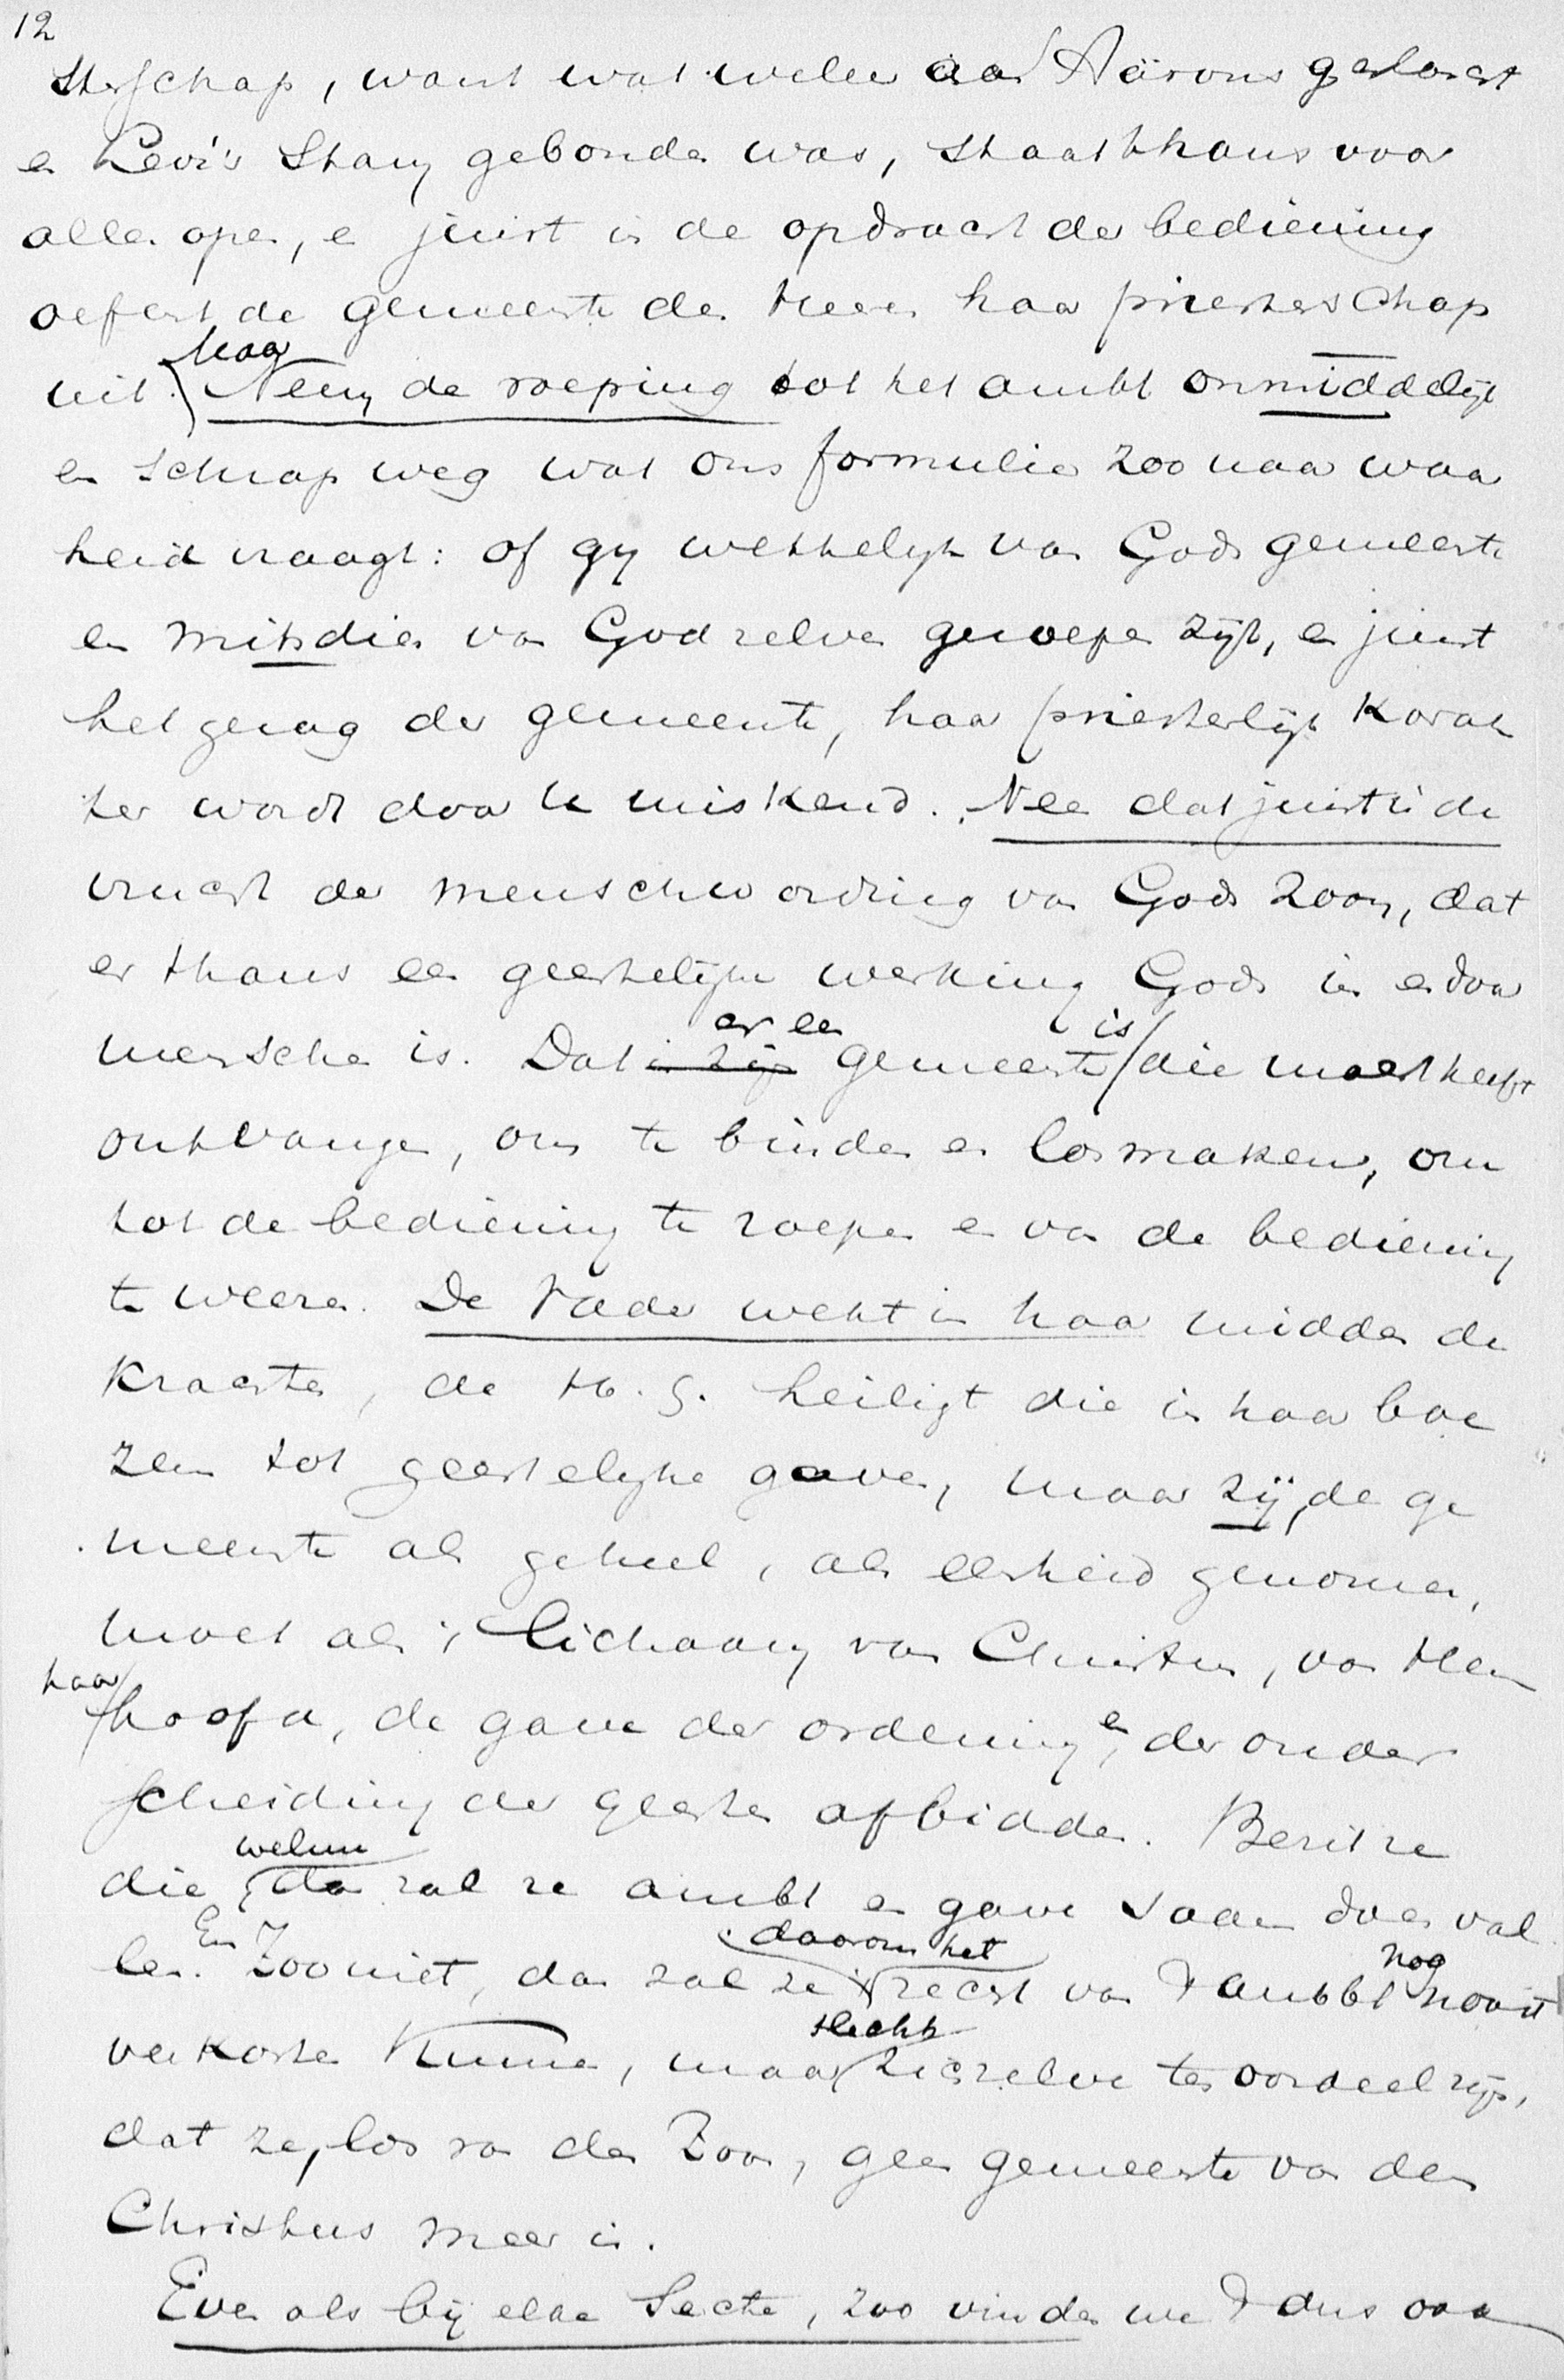 12
sterschap, want wat weleer aan Aärons geslacht
en Levi's Stam gebonden was, staat thans voor
allen open, en juist in de opdracht der bediening
oefent de gemeente des Heeren haar priesterschap
uit. Maar Neem de roeping tot het ambt onmiddelijk
en schrap weg wat ons formulier zoo naar waar
heid vraagt: of gij wettelijk van Gods gemeente
en mitsdien van God zelven geroepen zijt, en juist
het gezag der gemeente, haar priesterlijk karak
ter wordt door U miskend. Neen dat juist is de
vrucht der menschwording van Gods Zoon, dat
er thans een geestelijke werking Gods in en door
menschen is. Dat er een gemeente is die macht heeft
ontvangen, om te binden en losmaken, om
tot de bediening te roepen en van de bediening
te weeren. De Vader wekt in haar midden de
krachten, de H. G. heiligt die in haar boe
zem tot geestelijke gaven, maar zij, de ge
meente als geheel, als eenheid genomen,
moet als 't lichaam van Christus, van Hem
haar hoofd, de gave der ordening en der onder
scheiding der geesten afbidden. Bezit ze
die, welnu dan zal ze ambt en gave saam doen val
len. En Zoo niet, dan zal ze daarom het recht van 't ambt nog nooit
verkorten kunnen, maar slechts zichzelve ten oordeel zijn,
dat ze, los van den Zoon, geen gemeente van den
Christus meer is.
Even als bij elke Secte, zoo vinden we 't dus ook